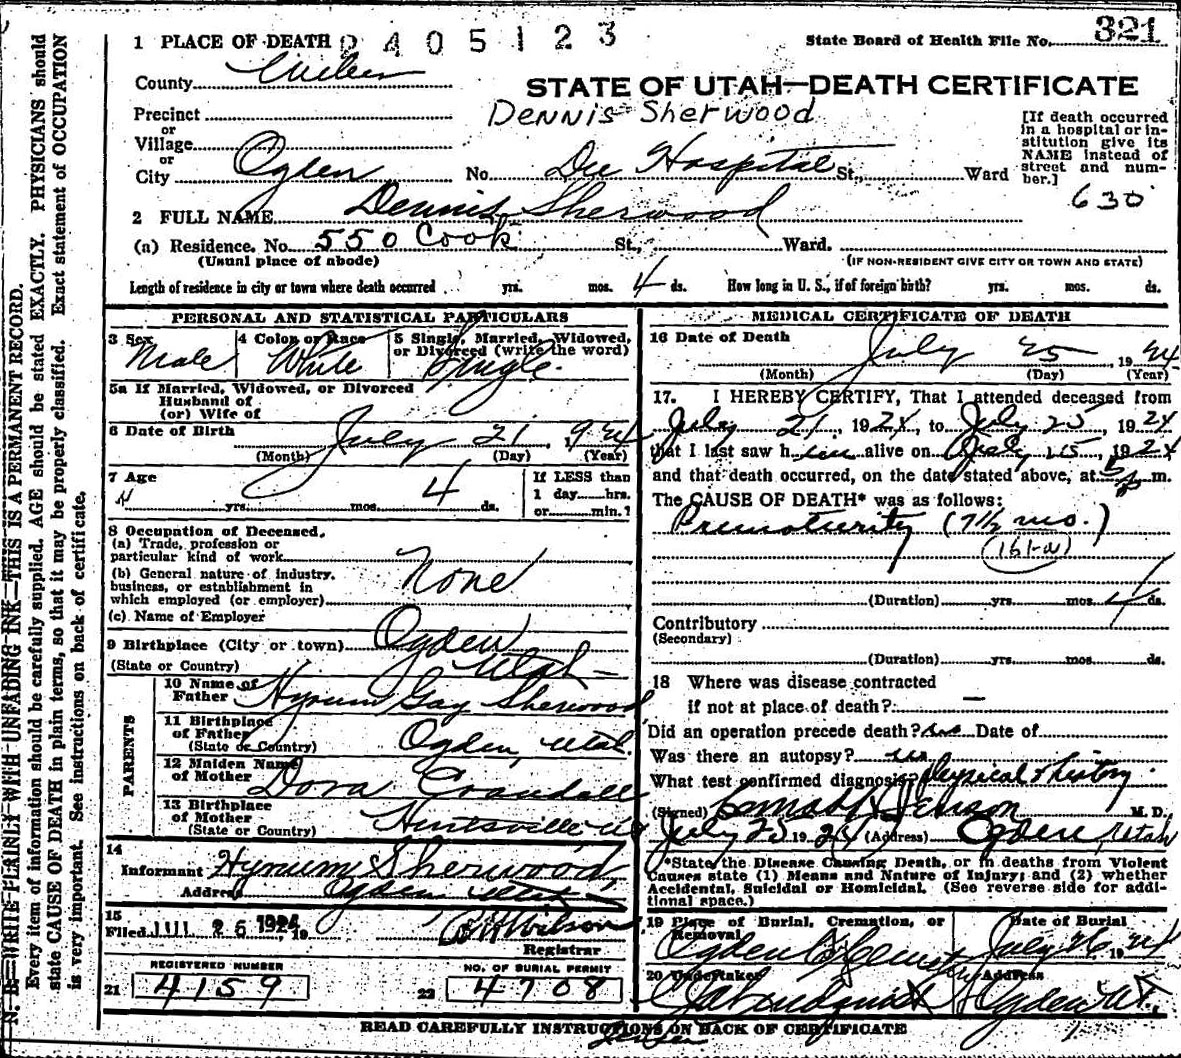 N. B.—WRITE PLAINLY WITH UNFADING INK—THIS IS A PERMANENT RECORD.
Every item of information should be carefully supplied. AGE should be stated EXACTLY. PHYSICIANS should
state CAUSE OF DEATH in plain terms, so that it may be properly classified. Exact statement of OCCUPATION
is very important. See instructions on back of certificate.
1 PLACE OF DEATH 2405123
State Board of Health File No. 321
County Weber
STATE OF UTAH—DEATH CERTIFICATE
Precinct
Dennis Sherwood
or
Village
or
City Ogden No. Dee Hospital St., Ward
[If death occurred
in a hospital or in-
stitution give its
NAME instead of
street and num-
ber.]
630
2 FULL NAME Dennis Sherwood
(a) Residence. No. 550 Cook St., Ward.
(Usual place of abode) (IF NON-RESIDENT GIVE CITY OR TOWN AND STATE)
Length of residence in city or town where death occurred yrs. mos. 4 ds. How long in U. S., if of foreign birth? yrs. mos. ds.
PERSONAL AND STATISTICAL PARTICULARS
3 Sex Male
4 Color or Race White
5 Single, Married, Widowed,
or Divorced (write the word)
Single
5a If Married, Widowed, or Divorced
Husband of
(or) Wife of
6 Date of Birth July 21, 924
(Month) (Day) (Year)
7 Age
yrs. mos. 4 ds.
If LESS than
1 day hrs.
or min.?
8 Occupation of Deceased.
(a) Trade, profession or
particular kind of work
None
(b) General nature of industry,
business, or establishment in
which employed (or employer)
(c) Name of Employer
9 Birthplace (City or town) Ogden
(State or Country) Utah
PARENTS
10 Name of
Father Hyrum Gay Sherwood
11 Birthplace
of Father
(State or Country) Ogden, Utah.
12 Maiden Name
of Mother Dora Crandall
13 Birthplace
of Mother
(State or Country) Huntsville Ut
14
Informant Hyrum Sherwood,
Address Ogden Utah
15
Filed JUL 26 1924, 19
Wilson
Registrar
REGISTERED NUMBER
21 4159
NO. OF BURIAL PERMIT
22 4708
MEDICAL CERTIFICATE OF DEATH
16 Date of Death July 25, 1924
(Month) (Day) (Year)
17. I HEREBY CERTIFY, That I attended deceased from
July 21, 1924, to July 25, 1924
that I last saw him alive on July 25, 1924
and that death occurred, on the date stated above, at 5 p m.
The CAUSE OF DEATH* was as follows:
Prematurity (7½ mo.)
(161-a)
(Duration) yrs. mos. 4 ds.
Contributory
(Secondary)
(Duration) yrs. mos. ds.
18 Where was disease contracted
if not at place of death? —
Did an operation precede death? no Date of
Was there an autopsy? no
What test confirmed diagnosis? physical & history.
(Signed) Jenson M. D.
July 25 1924 (Address) Ogden, Utah
*State the Disease Causing Death, or in deaths from Violent
Causes state (1) Means and Nature of Injury; and (2) whether
Accidental, Suicidal or Homicidal. (See reverse side for addi-
tional space.)
19 Place of Burial, Cremation, or
Removal
Ogden City Cemetery
Date of Burial
July 26, 1924
20 Undertaker
Address
Ogden Ut.
READ CAREFULLY INSTRUCTIONS ON BACK OF CERTIFICATE